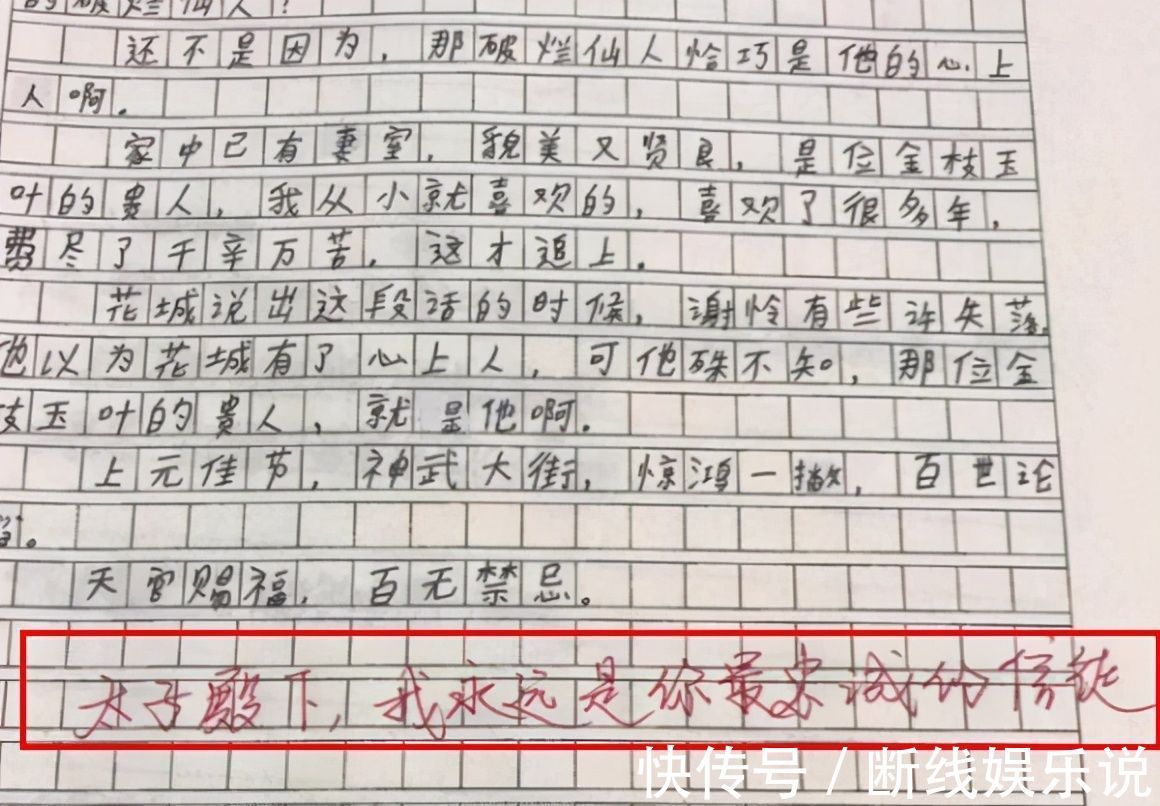 的破烂仙人?
还不是因为，那破烂仙人恰巧是他的心上
人啊。
家中已有妻室，貌美又贤良，是位金枝玉
叶的贵人，我从小就喜欢的，喜欢了很多年，
费尽了千辛万苦，这才追上。
花城说出这段话的时候，谢怜有些许失落，
他以为花城有了心上人，可他殊不知，那位金
枝玉叶的贵人，就是他啊。
上元佳节，神武大街，惊鸿一撇，百世沦
陷。
天官赐福，百无禁忌。
太子殿下，我永远是你最忠诚的信徒
快传号 / 断线娱乐说